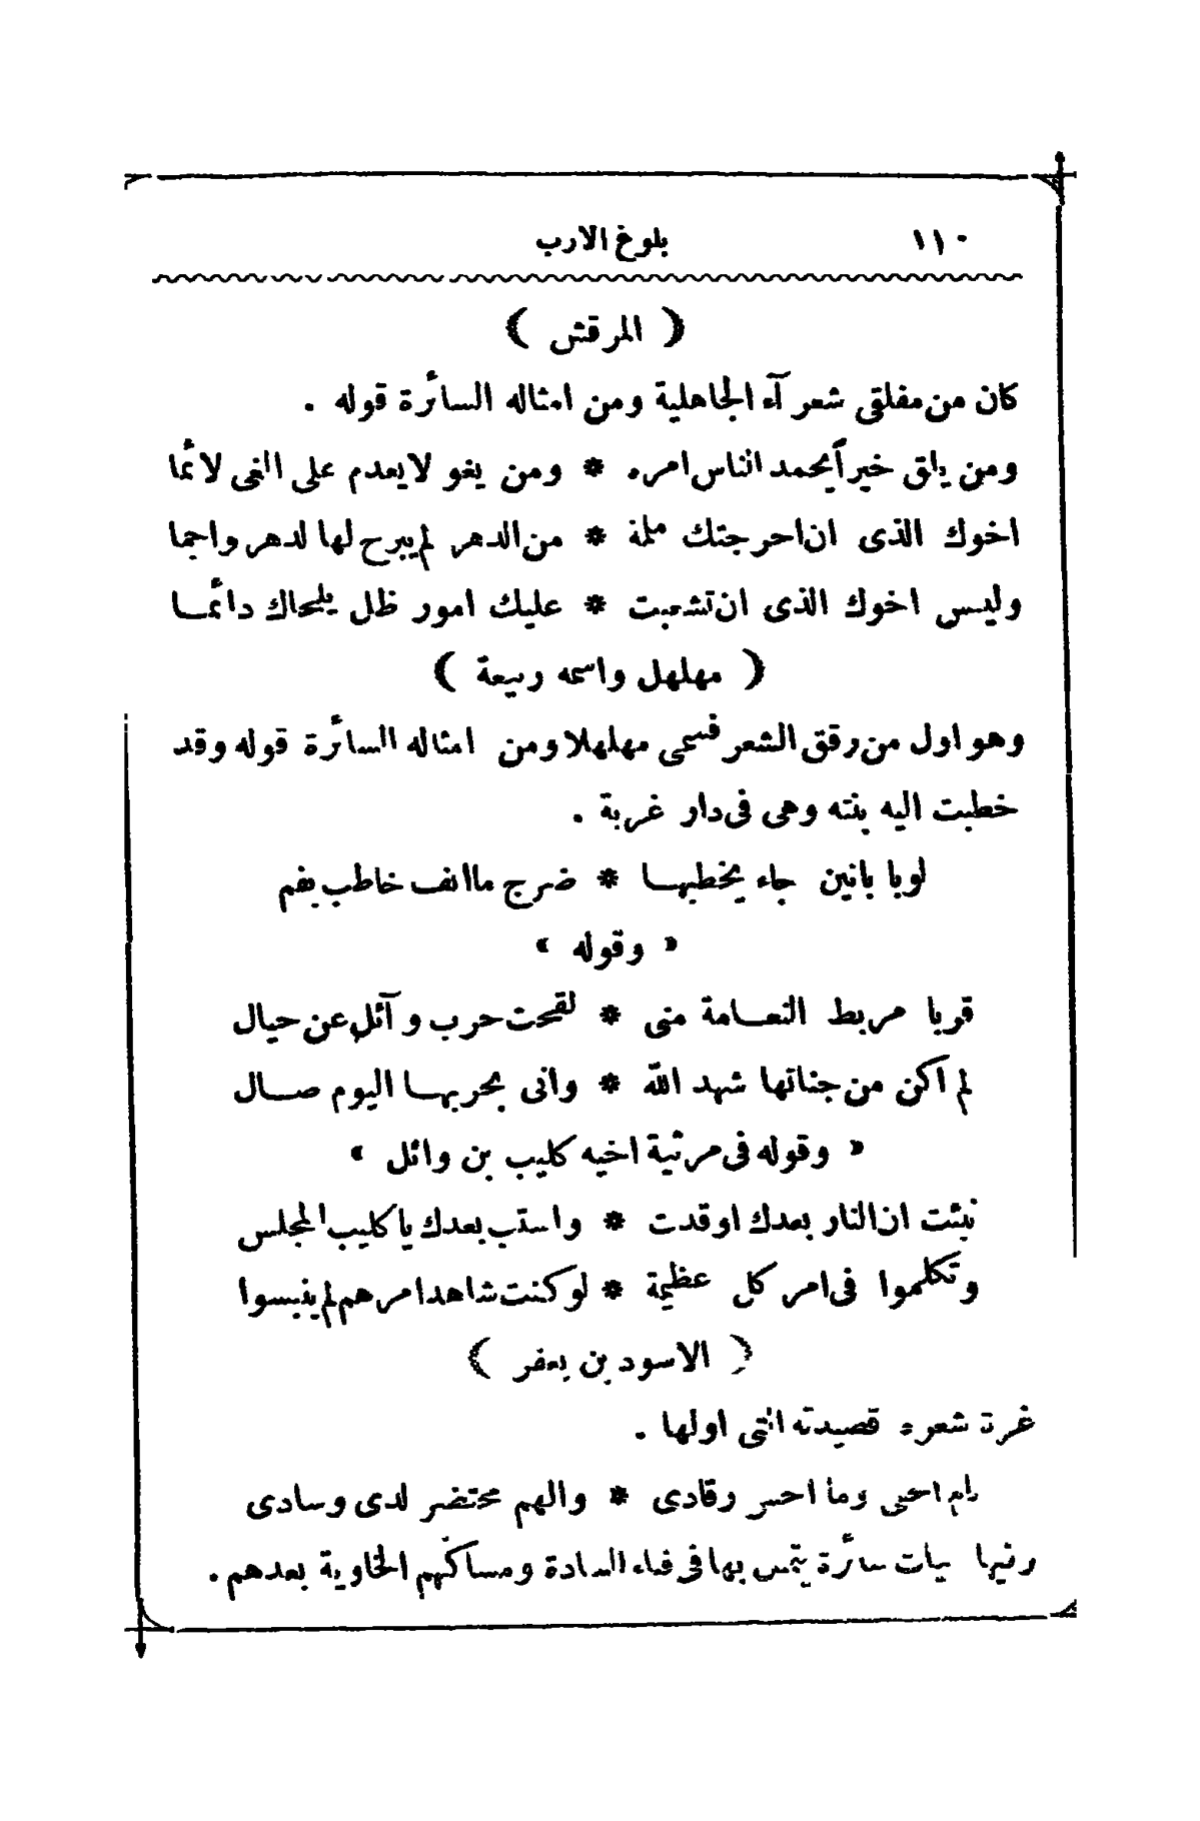 ١١٠ بلوغ الارب
﴿ المرقش ﴾
كان من مفلقى شعرآء الجاهلية ومن امثاله السائرة قوله .
ومن يلق خيراً يحمد الناس امره * ومن يغو لا يعدم على الغى لائما
اخوك الذى ان احرجتك ملمة * من الدهر لم يبرح لها لدهر واجما
وليس اخوك الذى ان تشعبت * عليك امور ظل يلحاك دائمـا
﴿ مهلهل واسمه ربيعة ﴾
وهو اول من رقق الشعر فسمى مهلهلا ومن امثاله السائرة قوله وقد
خطبت اليه بنته وهى فى دار غربة .
لوبا بانين جاء يخطبهـا * ضرج ما انف خاطب بفم
« وقوله »
قربا مربط النعـامة منى * لقحت حرب وآئل عن حيال
لم اكن من جناتها شهد الله * وانى بحربهـا اليوم صـال
« وقوله فى مرثية اخيه كليب بن وائل »
نبئت ان النار بعدك اوقدت * واستب بعدك يا كليب المجلس
وتكلموا فى امر كل عظيمة * لو كنت شاهد امرهم لم ينبسوا
﴿ الاسود بن يعفر ﴾
غرة شعره قصيدته التى اولها .
وما احس رقادى * والهم محتضر لدى وسادى
سائرة بها فى السادة ومساكنهم الخاوية بعدهم .